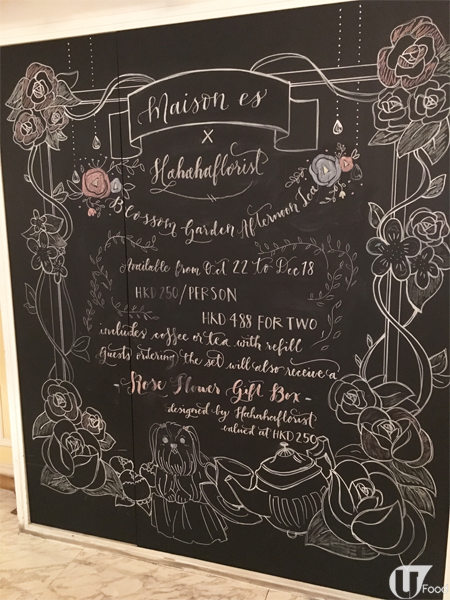 Maison es
X
Hahahaflorist
Blossom Garden Afternoon Tea
Available from Oct 22 to Dec 18
HKD 250/PERSON
HKD 488 FOR TWO
includes coffee or tea with refill
Guests ordering the set will also receive a
- Rose Flower Gift Box -
designed by Hahahaflorist
valued at HKD 250
U Food